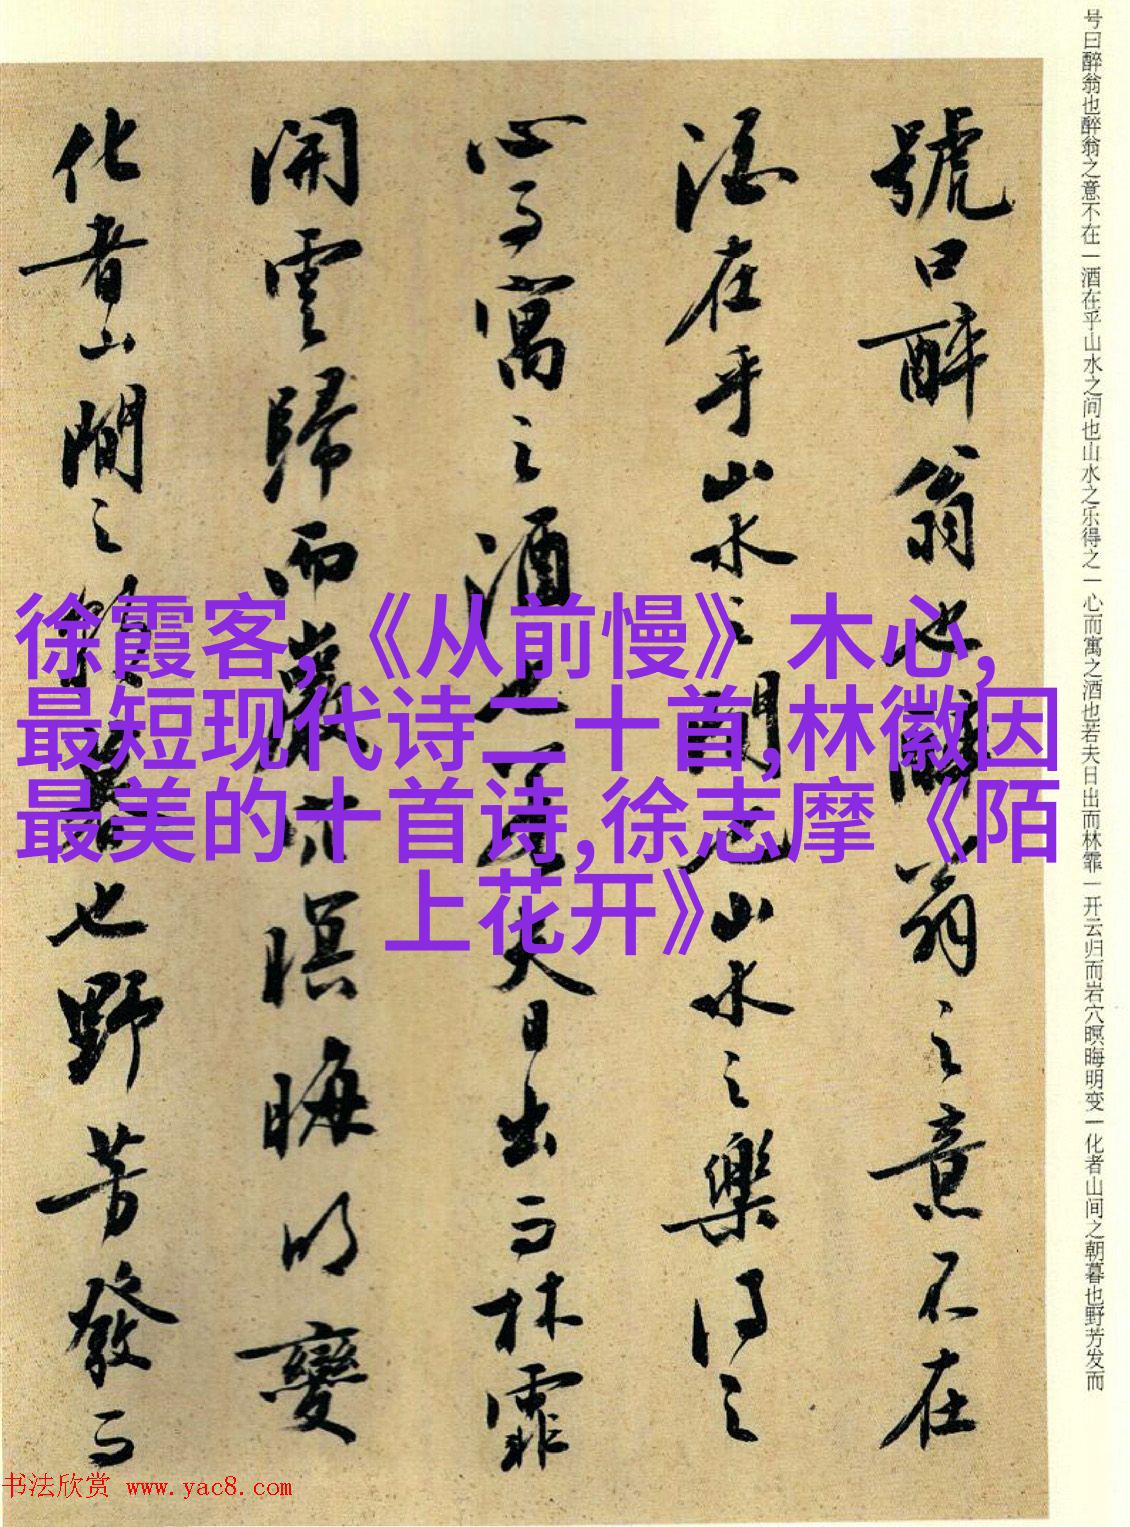 号曰醉翁也醉翁之意不在一酒在乎山水之间也山水之乐得之一心而寓之酒也若夫日出而林霏一开云归而岩穴暝晦明变一化者山间之朝暮也野芳发而
號曰醉翁也醉翁之意不在
酒在乎山水之間也山水之樂得之
心而寓之酒也若夫日出而林霏
開雲歸而巖穴暝晦明變
化者山間之朝暮也野芳發而
徐霞客,《从前慢》木心,
最短现代诗二十首,林徽因
最美的十首诗,徐志摩《陌
上花开》
书法欣赏 www.yac8.com